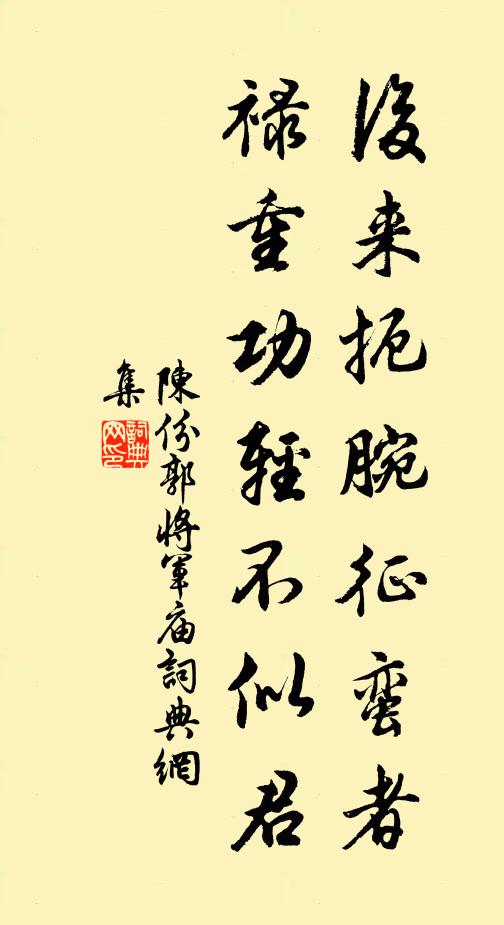 後来扼腕征蛮者
禄重功輕不似君
陳份郭將軍庙詞典網
集
詞典
网印